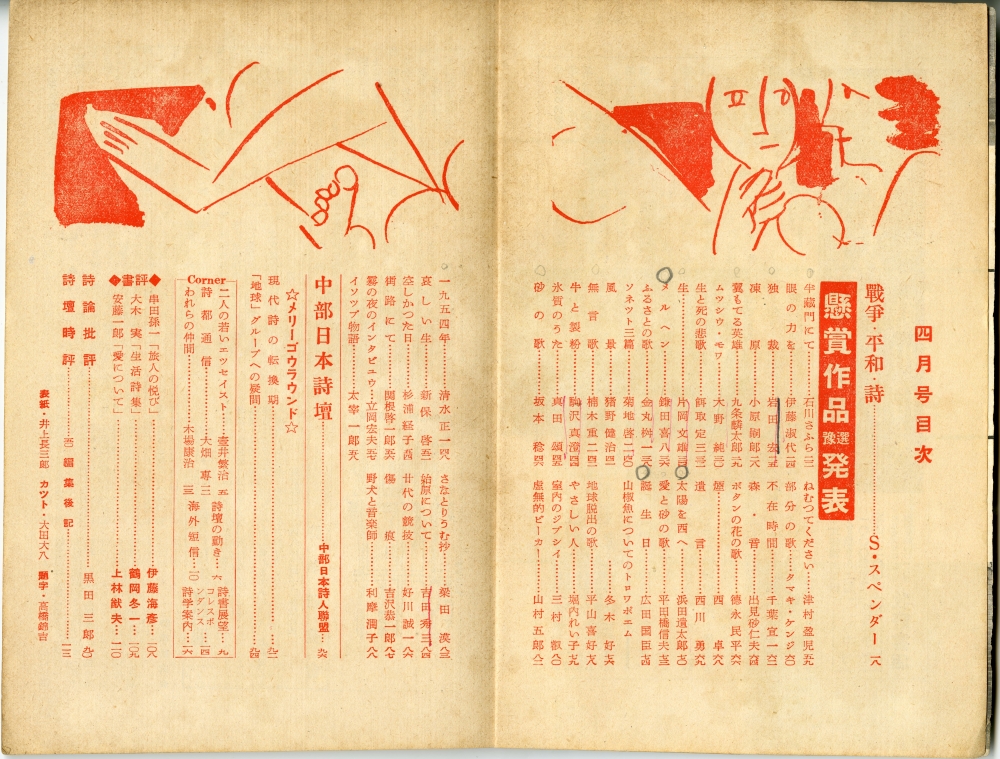 四月号目次
戰爭・平和・詩……S・スペンダー
懸賞作品
豫選
発表
半蔵門にて……石川さふら
眼の力を……伊藤淑代
独裁……岩田宏
凍原……小原嗣郎
翼もてる英雄……九条麟太郎
ムツシウ・モワ……大野純
生と死の悲歌……餌取定三
生……片岡文雄
メルヘン……鎌田喜八
ふるさとの歌……金丸桝一
ソネツト三篇……菊地啓二
風景……猪野健治
無言歌……楠木重二
牛と製粉……駒沢真澄
氷質のうた……真田頌
砂の歌……坂本稔
ねむつてください……津村盈児
部分の歌……タマキ・ケンジ
不在時間……千葉宣一
森・音……出見砂仁夫
ボタンの花の歌……徳永民平
遺言……西川勇
太陽を西へ……浜田道太郎
愛と砂の歌……平田橋信夫
誕生日……広田国臣
山椒魚についてのトロワポエム
冬木好
地球脱出の歌……平山喜好
やさしい人……堀内れい子
室内のジプシイ……三村叡
虚無的ビーカー……山村五郎
一九五四年……清水正一
哀しい生……新保啓
空しかつた日……杉浦経子
街路にて……関根啓一郎
霧の夜のインタビュウ……立岡宏夫
イソツプ物語……太宰一郎
さなとりうむ抄……梁田漠
始原について……吉田秀三
廿代の競技……好川誠一
傷痕……吉沢恭一郎
野犬と音楽師……利摩潤子
中部日本詩壇……中部日本詩人聯盟
☆メリーゴウラウンド☆
現代詩の転換期
「地球」グループへの疑問
Corner
二人の若いエツセイスト……壺井繁治
詩都通信……大畑専
われらの仲間……木場康治
詩壇の動き
海外短信
詩書展望
コレスポンダンス
詩学案内
◆書評◆
串田孫一「旅人の悦び」……伊藤海彦
大木実「生活詩集」……鶴岡冬一
安藤一郎「愛について」……上林猷夫
詩論批評……黒田三郎
詩壇時評
編集後記
表紙・井上長三郎 カツト・大田大八 題字・高橋錦吉